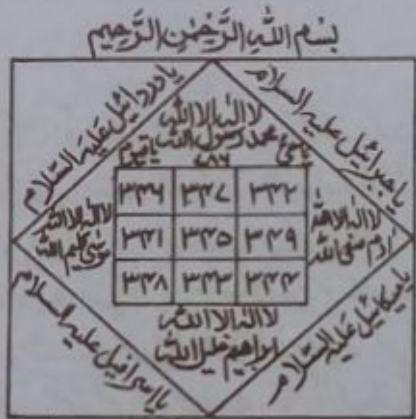 بسم اللہ الرحمن الرحیم
یا جبرائیل علیہ السلام
یا دردائیل علیہ السلام
لا الہ الا اللہ
محمد رسول اللہ
یا حی
یا قیوم
۷۸۶
۳۴۶ ۳۴۷ ۳۴۲
۳۴۱ ۳۴۵ ۳۴۹
۳۴۸ ۳۴۳ ۳۴۴
لا الہ الا اللہ
آدم صفی اللہ
لا الہ الا اللہ
موسیٰ کلیم اللہ
لا الہ الا اللہ
ابراہیم خلیل اللہ
یا میکائیل علیہ السلام
یا اسرافیل علیہ السلام